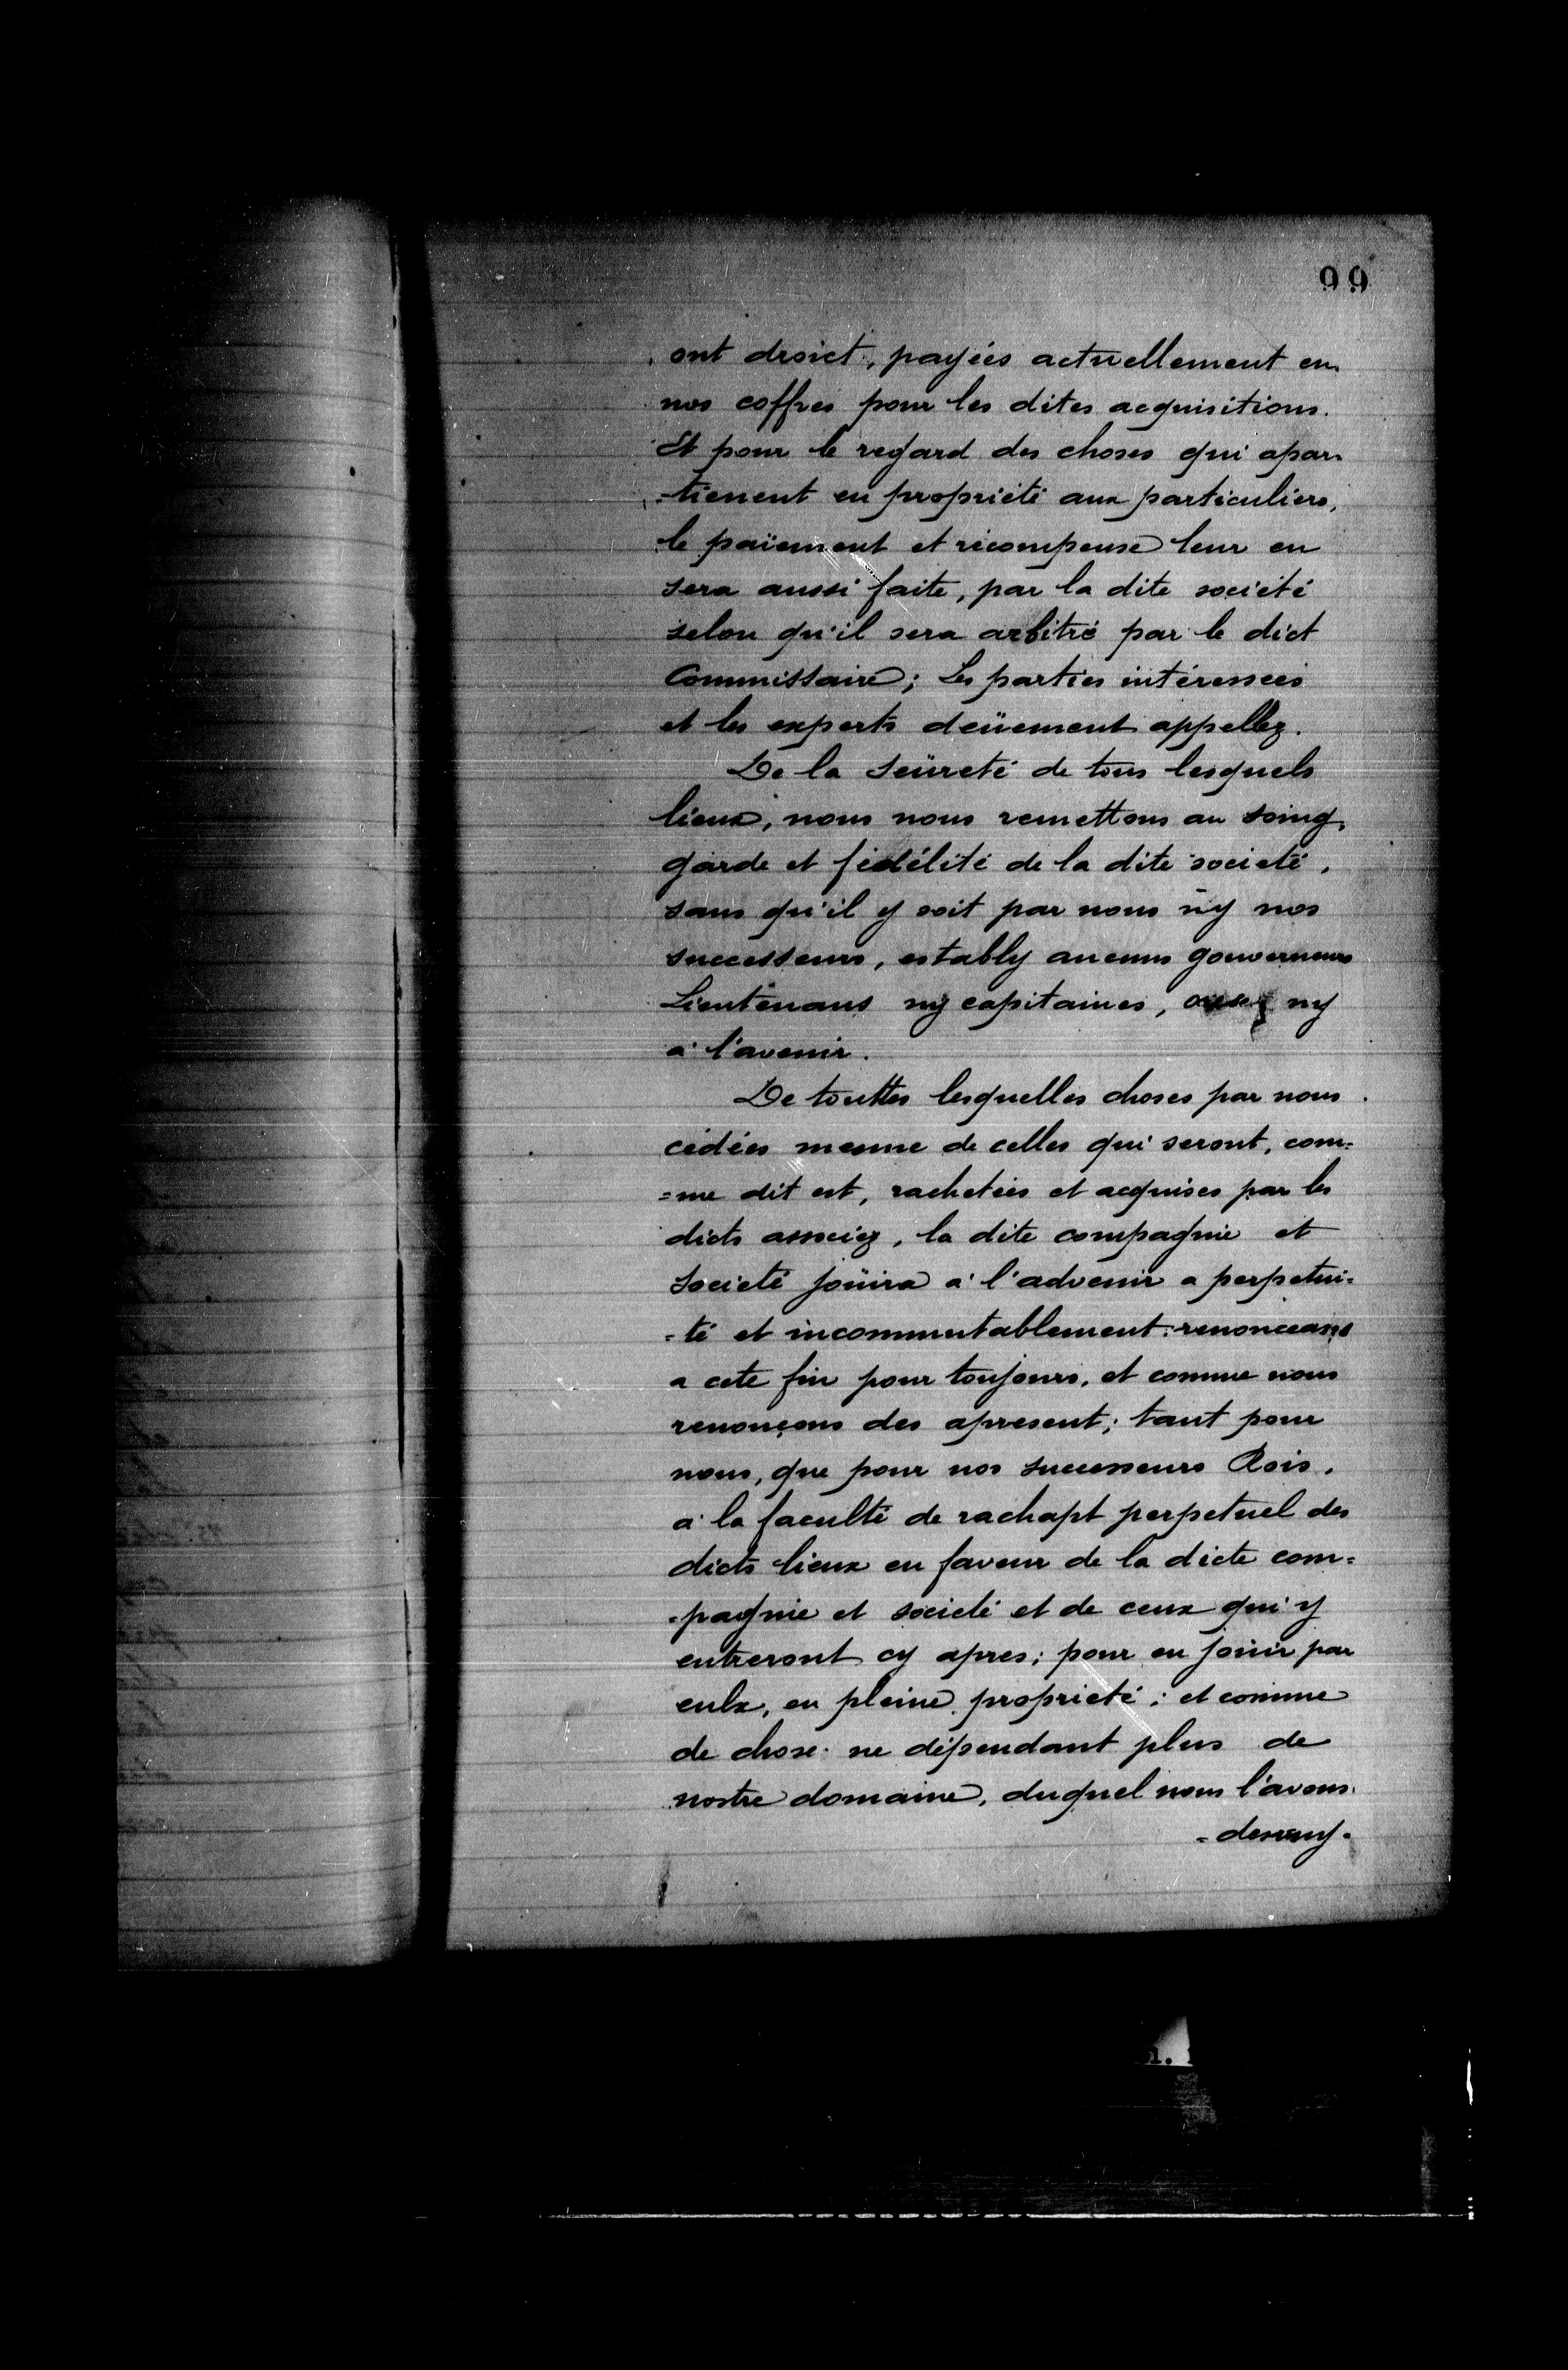 99
ont droict, payées actuellement en
nos coffres pour les dites acquisitions.
Et pour le regard des choses qui apar-
-tienent en propriété aux particuliers,
le païement et récompense leur en
sera aussi faite, par la dite société
selon qu'il sera arbitré par le dict
Commissaire; Les parties intéressées
et les experts deüement appellez.
De la seüreté de tous lesquels
lieux, nous nous remettons au soing,
garde et fidélité de la dite societé,
sans qu'il y soit par nous ny nos
successeurs, estably aucuns gouverneurs
Lieutenans ny capitaines, ny
a' l'avenir.
De touttes lesquelles choses par nous
cédées mesme de celles qui seront, com=
=me dit est, rachetées et acquises par les
dicts associez, la dite compagnie et
Societé joüira a' l'advenir a perpetui=
=té et incommutablement: renonceans
a cete fin pour toujours, et comme nous
renonçons des apresent; tant pour
nous, que pour nos successeurs Rois,
a' la faculté de rachapt perpetuel des
dicts lieux en faveur de la dicte com=
=pagnie et société et de ceux qui y
entreront cy apres; pour en joüir par
eulx, en pleine proprieté; et comme
de chose ne dépendant plus de
nostre domaine, duquel nous l'avons